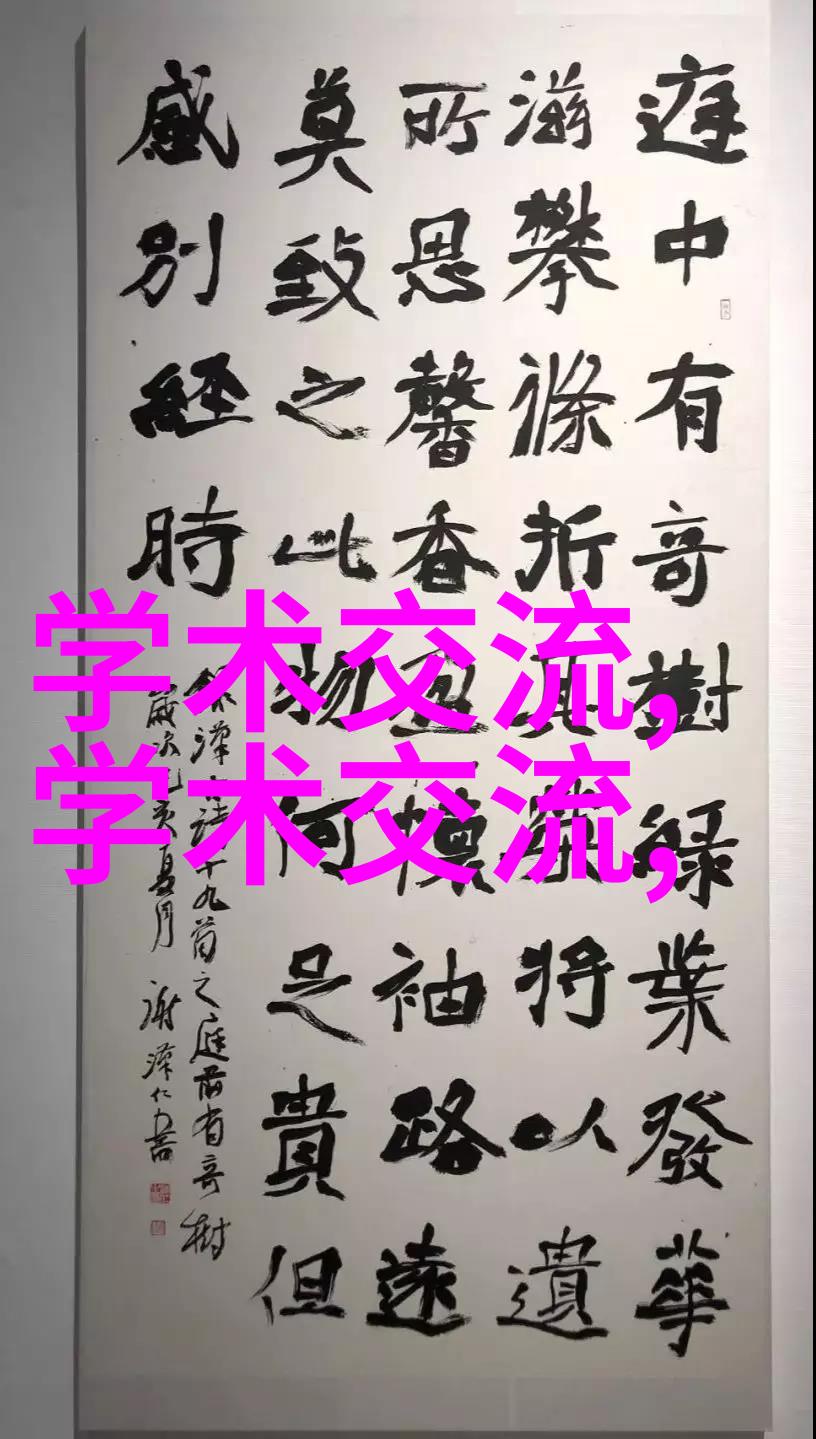 庭中有竒樹綠葉發華
滋攀條折其榮將以遺
所思馨香盈懷袖路遠
莫致之此物何足貴但
感別經時
錄漢古詩十九首之庭前有竒樹
歲次己亥夏月 謝
学术交流,
学术交流,